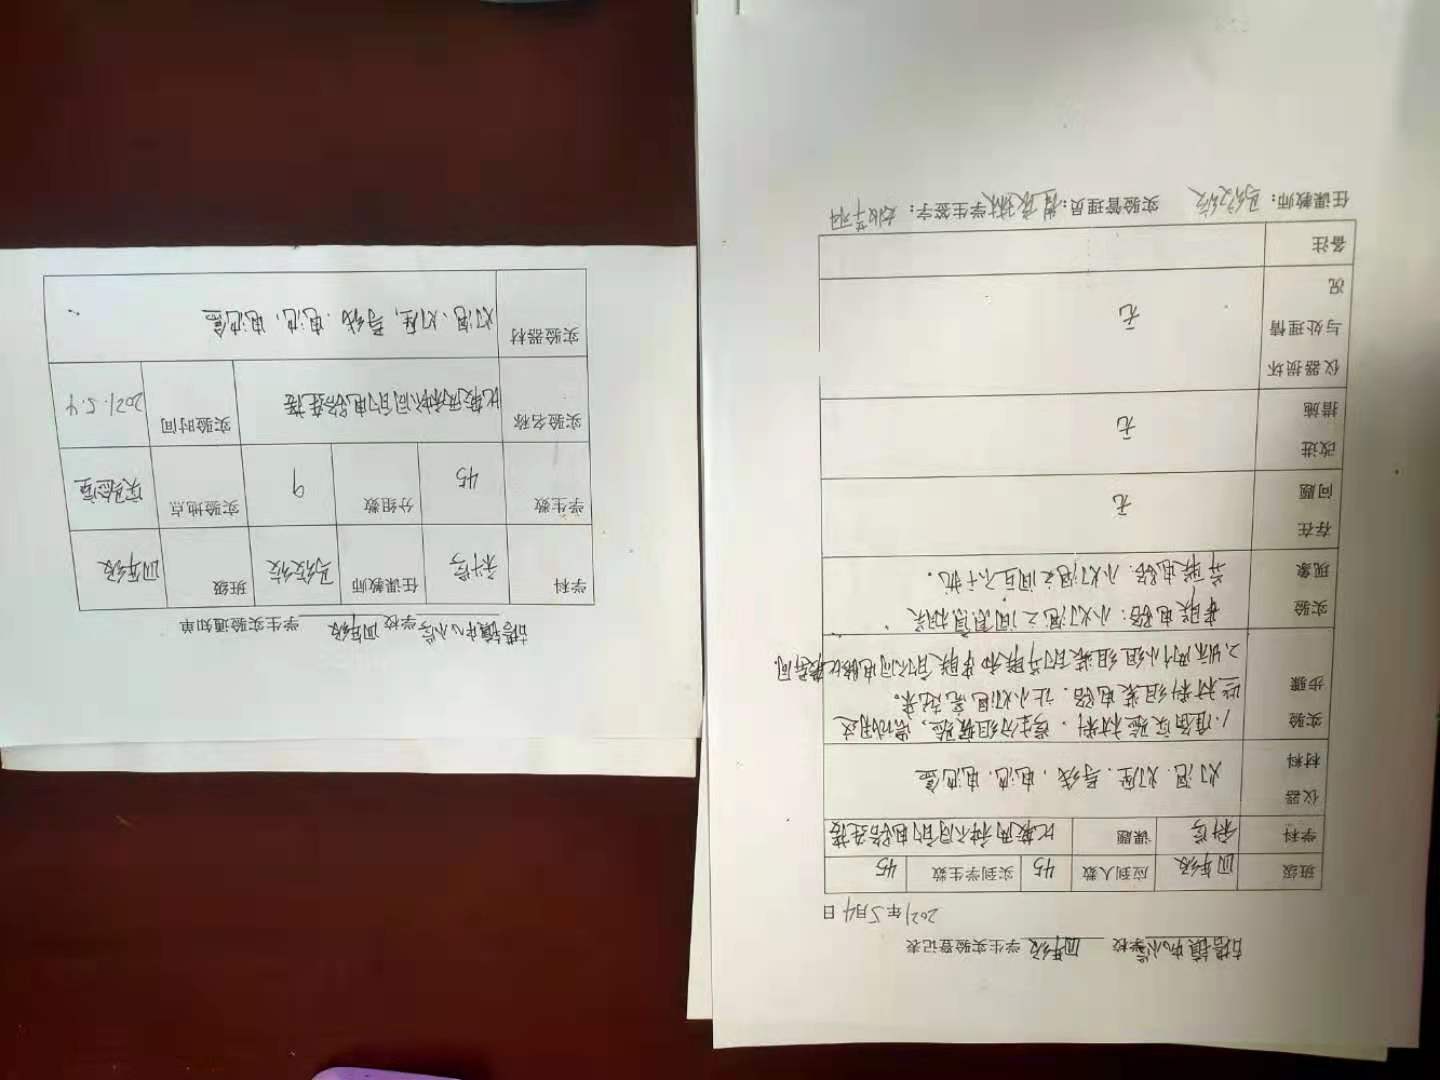 古塔镇中心小学 学校 四年级 学生实验登记表
2021年5月4日
班级 四年级 应到人数 45 实到学生数 45
学科 科学 课题 比较两种不同的电路连接
仪器材料 灯泡、灯座、导线、电池、电池盒
实验步骤 1.准备实验材料,学生分组实验,
些材料组装电路,让小灯泡亮起来。
2.
实验现象 串联电路:小灯泡之间
并联电路:小灯泡之间互不干扰。
存在问题 无
改进措施 无
仪器损坏与处理情况 无
备注
任课教师: 实验管理员: 学生签字:
古塔镇中心小学 学校 四年级 学生实验通知单
学科 科学 任课教师 班级 四年级
学生数 45 分组数 9 实验地点 实验室
实验名称 比较两种不同的电路连接 实验时间 2021.5.4
实验器材 灯泡、灯座,导线、电池、电池盒